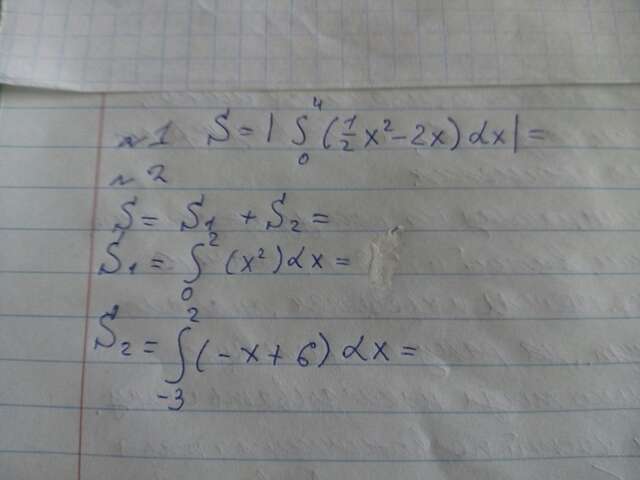 №1 S = | ∫₀⁴ (½x² - 2x) dx | =
№2
S = S₁ + S₂ =
S₁ = ∫₀² (x²) dx =
S₂ = ∫₋₃² (-x + 6) dx =